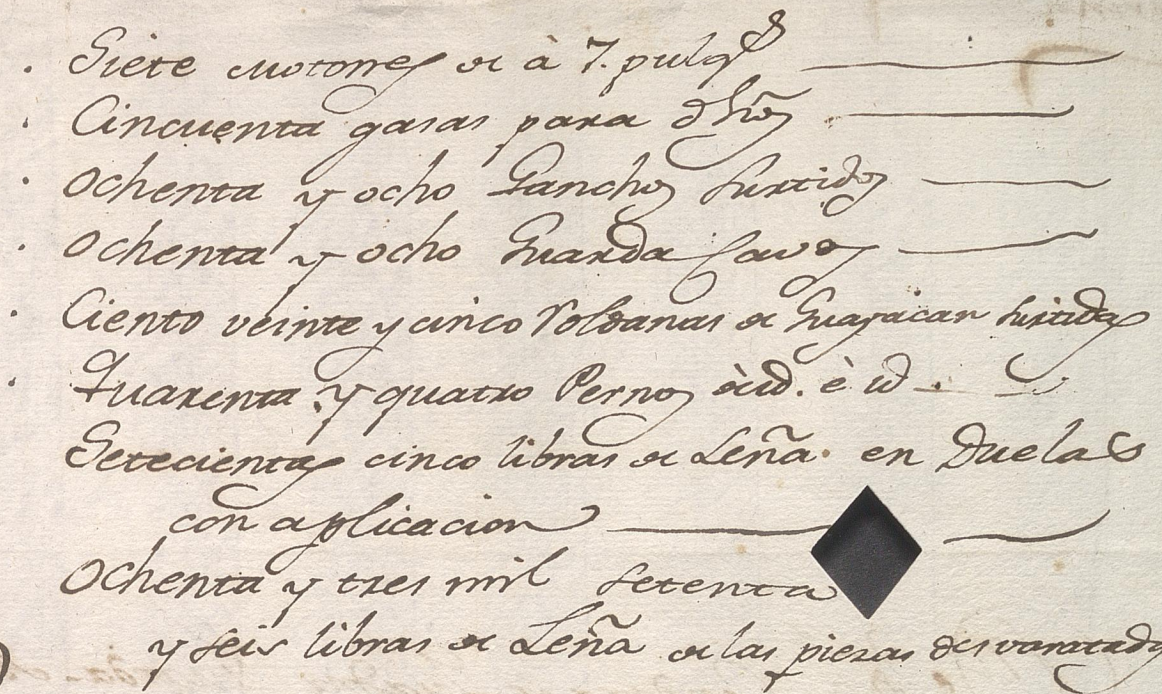 Siete Motones de à 7. pulgs
Cincuenta gasas para dhos
Ochenta y ocho Ganchos Surtidos
Ochenta y ocho Guarda Cavos
Ciento veinte y cinco Roldanas de Guayacan Surtidas
Quarenta y quatro Pernos id. è id
Setecientas cinco libras de Leña en Duelas
con aplicacion
Ochenta y tres mil setenta
y seis libras de Leña de las piezas desvaratadas